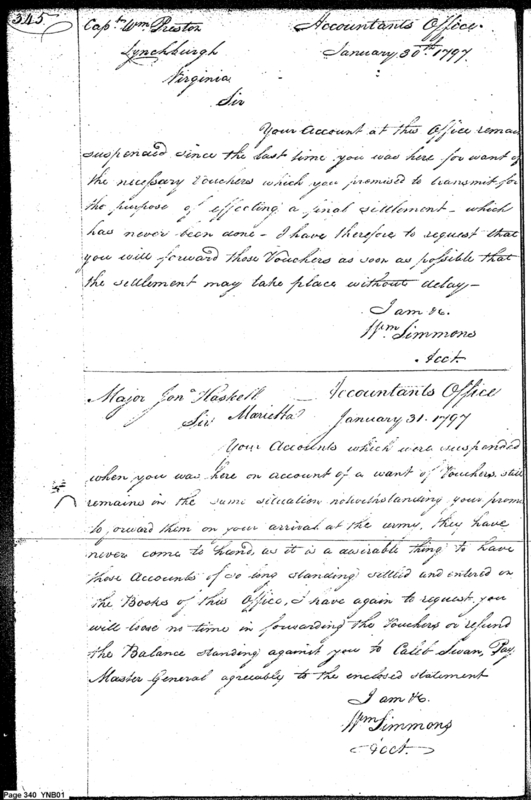 345
Capt Wm Preston Accountants Office
Lynchburgh January 30th 1797
Virginia
Sir
Your Account at this Office remain
suspended since the last time you was here for want of
the necessary Vouchers which you promised to transmit for
the purpose of effecting a final settlement - which
has never been done - I have therefore to request that
you will forward those Vouchers as soon as possible that
the settlement may take place without delay -
I am &c.
Wm Simmons
Acct.
Major Jona Haskell Accountants Office
Sir Marietta January 31. 1797
Your Accounts which were suspended
when you was here on account of a want of Vouchers still
remains in the same situation notwithstanding your promise
to forward them on your arrival at the army, they have
never come to hand, as it is a desirable thing to have
those Accounts of so long standing settled and entered on
the Books of this Office, I have again to request you
will loose no time in forwarding the Vouchers or refund
the Balance standing against you to Caleb Swan, Pay
Master General agreeably to the enclosed statement
I am &c.
Wm Simmons
Acct.
Page 340 YNB01